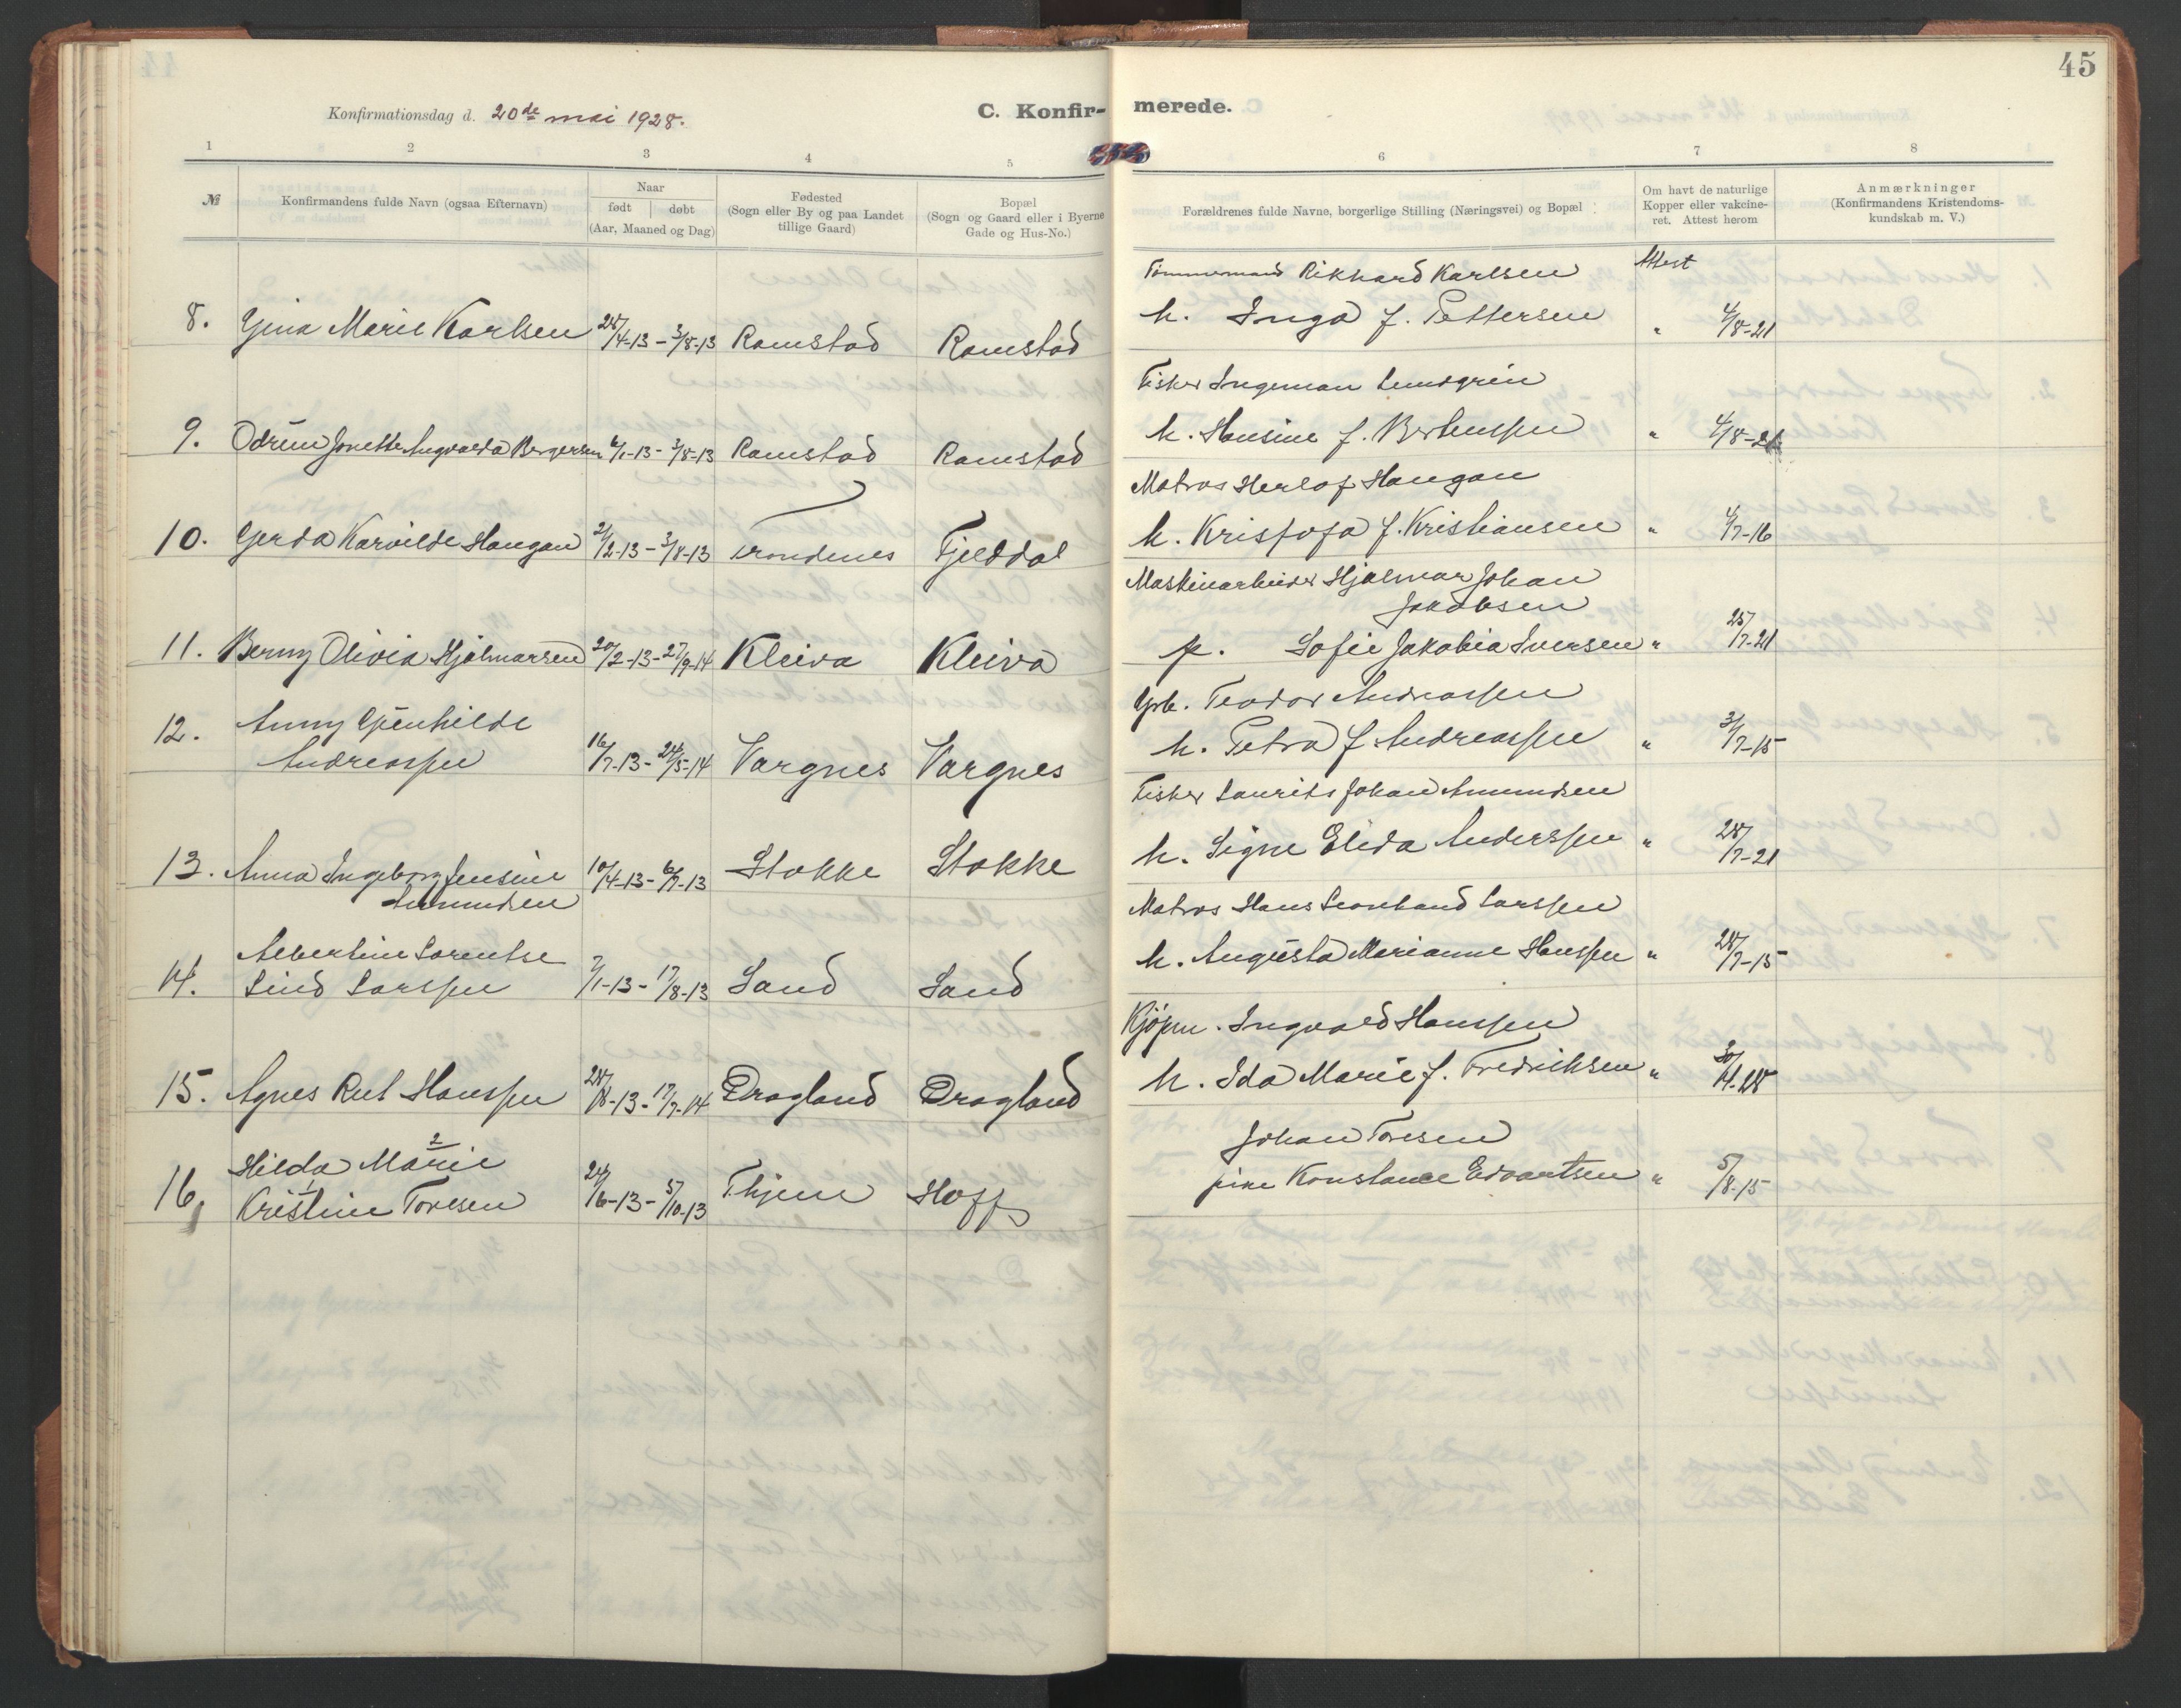 45
Konfirmationsdag d. 20de mai 1928.
C. Konfir- merede.
1 2 3 4 5 6 7 8
№
Konfirmandens fulde Navn (ogsaa Efternavn)
Naar
født døbt
(Aar, Maaned og Dag)
Fødested
(Sogn eller By og paa Landet
tillige Gaard)
Bopæl
(Sogn og Gaard eller i Byerne
Gade og Hus-No.)
Forældrenes fulde Navne, borgerlige Stilling (Næringsvei) og Bopæl
Om havt de naturlige
Kopper eller vakcine-
ret. Attest herom
Anmærkninger
(Konfirmandens Kristendoms-
kundskab m. V.)
Tømmermand Rikhard Karlsen Attest
8. Gina Marie Karlsen 28/4-13 - 3/8-13 Ramstad Ramstad h. Inga f. Pettersen " 4/8-21
Fisker Ingeman Lundgren
9. Odrun Jonette Ingvarda Bergersen 6/1-13 - 3/8-13 Ramstad Ramstad h. Hansine f. Berthenssen " 4/8-21
Matros Herlof Haugan
10. Gerda Karvilde Haugan 21/2-13 - 3/8-13 Trondenes Fjelddal h. Kristofa f. Kristiansen " 4/7-16
Maskinarbeider Hjalmar Johan
Jakobsen
11. Berny Olivia Hjalmarsen 20/2-13 - 27/9-14 Kleiva Kleiva p. Sofie Jakobia Iversen " 25/7-21
Grb. Teodor Andreassen
12. Anny Gunhilde
Andreassen 16/7-13 - 24/5-14 Vargnes Vargnes h. Petra f. Andreassen " 3/7-15
Fisker Laurits Johan Amundsen
13. Anna Ingeborg Jensine
Amundsen 10/4-13 - 6/7-13 Stokke Stokke h. Signe Elida Anderssen " 28/7-21
Matros Hans Leonhard Larssen
14. Albertine Lorentse
Lind Larssen 7/1-13 - 17/8-13 Sand Sand h. Augusta Marianne Hanssen " 28/7-15
Kjøpm. Ingvald Hanssen
15. Agnes Rut Hanssen 28/8-13 - 17/7-14 Dragland Dragland h. Ida Marie f. Fredriksen " 30/4-28
Johan Toresen
16, Hilda Marie 2
Kristine 1 Toresen 24/6-13 - 5/10-13 Thjem Hoff pike Konstance Edvartsen " 5/8-15